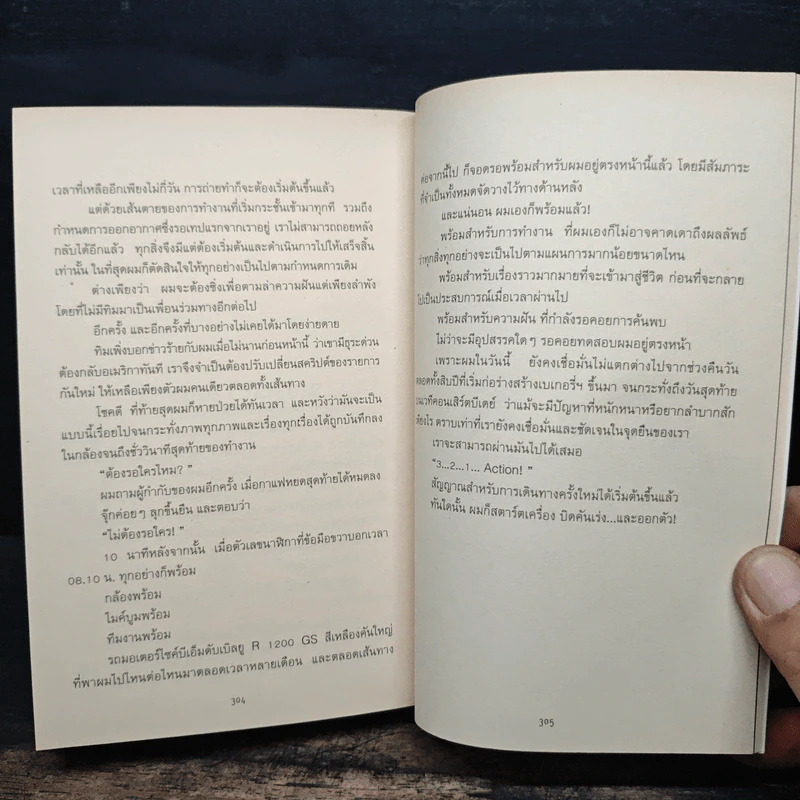 เวลาที่เหลืออีกเพียงไม่กี่วัน การถ่ายทำก็จะต้องเริ่มต้นขึ้นแล้ว
แต่ด้วยเส้นตายของการทำงานที่เริ่มกระชั้นเข้ามาทุกที รวมถึง
กำหนดการออกอากาศซึ่งรอเทปแรกจากเราอยู่ เราไม่สามารถถอยหลัง
กลับได้อีกแล้ว ทุกสิ่งจึงมีแต่ต้องเริ่มต้นและดำเนินการไปให้เสร็จสิ้น
เท่านั้น ในที่สุดผมก็ตัดสินใจให้ทุกอย่างเป็นไปตามกำหนดการเดิม
ต่างเพียงว่า ผมจะต้องซิ่งเพื่อตามล่าความฝันแต่เพียงลำพัง
โดยที่ไม่มีทิมมาเป็นเพื่อนร่วมทางอีกต่อไป
อีกครั้ง และอีกครั้งที่บางอย่างไม่เคยได้มาโดยง่ายดาย
ทิมเพิ่งบอกข่าวร้ายกับผมเมื่อไม่นานก่อนหน้านี้ ว่าเขามีธุระด่วน
ต้องกลับอเมริกาทันที เราจึงจำเป็นต้องปรับเปลี่ยนสคริปต์ของรายการ
กันใหม่ ให้เหลือเพียงตัวผมคนเดียวตลอดทั้งเส้นทาง
โชคดี ที่ท้ายสุดผมก็หายป่วยได้ทันเวลา และหวังว่ามันจะเป็น
แบบนี้เรื่อยไปจนกระทั่งภาพทุกภาพและเรื่องทุกเรื่องได้ถูกบันทึกลง
ในกล้องจนถึงชั่ววินาทีสุดท้ายของทำงาน
“ต้องรอใครไหม? ”
ผมถามผู้กำกับของผมอีกครั้ง เมื่อกาแฟหยดสุดท้ายได้หมดลง
จุ๊กค่อยๆ ลุกขึ้นยืน และตอบว่า
“ไม่ต้องรอใคร! ”
10 นาทีหลังจากนั้น เมื่อตัวเลขนาฬิกาที่ข้อมือขวาบอกเวลา
08.10 น. ทุกอย่างก็พร้อม
กล้องพร้อม
ไมค์บูมพร้อม
ทีมงานพร้อม
รถมอเตอร์ไซค์บีเอ็มดับเบิลยู R 1200 GS สีเหลืองคันใหญ่
ที่พาผมไปไหนต่อไหนมาตลอดเวลาหลายเดือน และตลอดเส้นทาง
304
ต่อจากนี้ไป ก็จอดรอพร้อมสำหรับผมอยู่ตรงหน้านี้แล้ว โดยมีสัมภาระ
ที่จำเป็นทั้งหมดจัดวางไว้ทางด้านหลัง
และแน่นอน ผมเองก็พร้อมแล้ว!
พร้อมสำหรับการทำงาน ที่ผมเองก็ไม่อาจคาดเดาถึงผลลัพธ์
ว่าทุกสิ่งทุกอย่างจะเป็นไปตามแผนการมากน้อยขนาดไหน
พร้อมสำหรับเรื่องราวมากมายที่จะเข้ามาสู่ชีวิต ก่อนที่จะกลาย
ไปเป็นประสบการณ์เมื่อเวลาผ่านไป
พร้อมสำหรับความฝัน ที่กำลังรอคอยการค้นพบ
ไม่ว่าจะมีอุปสรรคใดๆ รอคอยทดสอบผมอยู่ตรงหน้า
เพราะผมในวันนี้ ยังคงเชื่อมั่นไม่แตกต่างไปจากช่วงคืนวัน
ตลอดทั้งสิบปีที่เริ่มก่อร่างสร้างเบเกอรี่ฯ ขึ้นมา จนกระทั่งถึงวันสุดท้าย
บนเวทีคอนเสิร์ตบีเดย์ ว่าแม้จะมีปัญหาที่หนักหนาหรือยากลำบากสัก
เพียงไร ตราบเท่าที่เรายังคงเชื่อมั่นและชัดเจนในจุดยืนของเรา
เราจะสามารถผ่านมันไปได้เสมอ
“3...2...1... Action! ”
สัญญาณสำหรับการเดินทางครั้งใหม่ได้เริ่มต้นขึ้นแล้ว
ทันใดนั้น ผมก็สตาร์ตเครื่อง บิดคันเร่ง...และออกตัว!
305